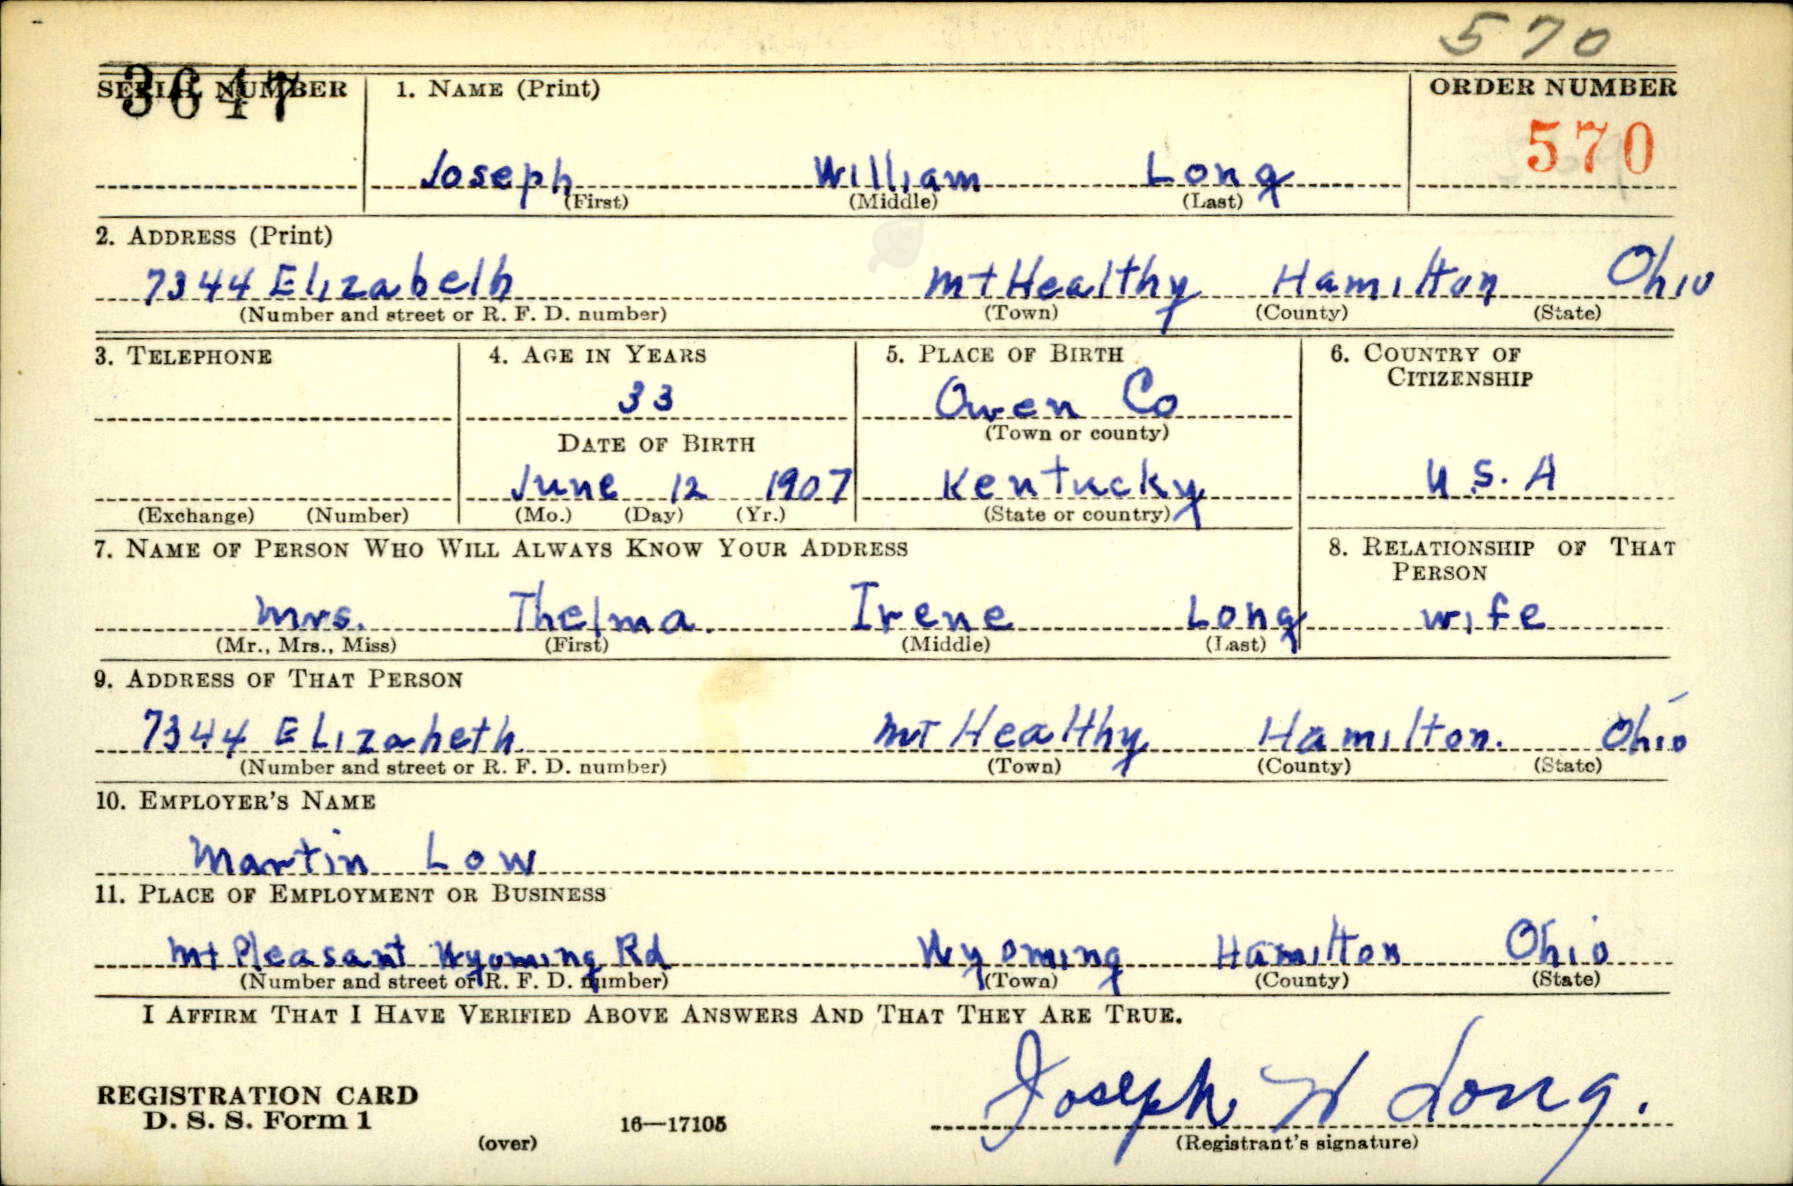 570
3647
SERIAL NUMBER 1. NAME (Print) ORDER NUMBER
570
Joseph William Long
(First) (Middle) (Last)
2. ADDRESS (Print)
7344 Elizabeth Mt Healthy Hamilton Ohio
(Number and street or R. F. D. number) (Town) (County) (State)
3. TELEPHONE 4. AGE IN YEARS 5. PLACE OF BIRTH 6. COUNTRY OF
CITIZENSHIP
33 Owen Co
(Town or county)
DATE OF BIRTH
June 12 1907 Kentucky U.S.A
(Exchange) (Number) (Mo.) (Day) (Yr.) (State or country)
7. NAME OF PERSON WHO WILL ALWAYS KNOW YOUR ADDRESS 8. RELATIONSHIP OF THAT
PERSON
Mrs. Thelma Irene Long wife
(Mr., Mrs., Miss) (First) (Middle) (Last)
9. ADDRESS OF THAT PERSON
7344 Elizabeth Mt Healthy Hamilton. Ohio
(Number and street or R. F. D. number) (Town) (County) (State)
10. EMPLOYER'S NAME
Martin Low
11. PLACE OF EMPLOYMENT OR BUSINESS
Mt Pleasant Wyoming Rd Wyoming Hamilton Ohio
(Number and street or R. F. D. number) (Town) (County) (State)
I AFFIRM THAT I HAVE VERIFIED ABOVE ANSWERS AND THAT THEY ARE TRUE.
Joseph W Long.
REGISTRATION CARD
D. S. S. Form 1 16—17105
(over) (Registrant's signature)